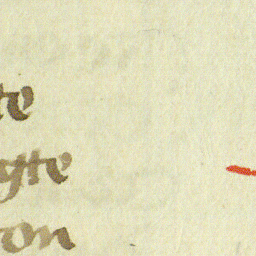 te
gte
on